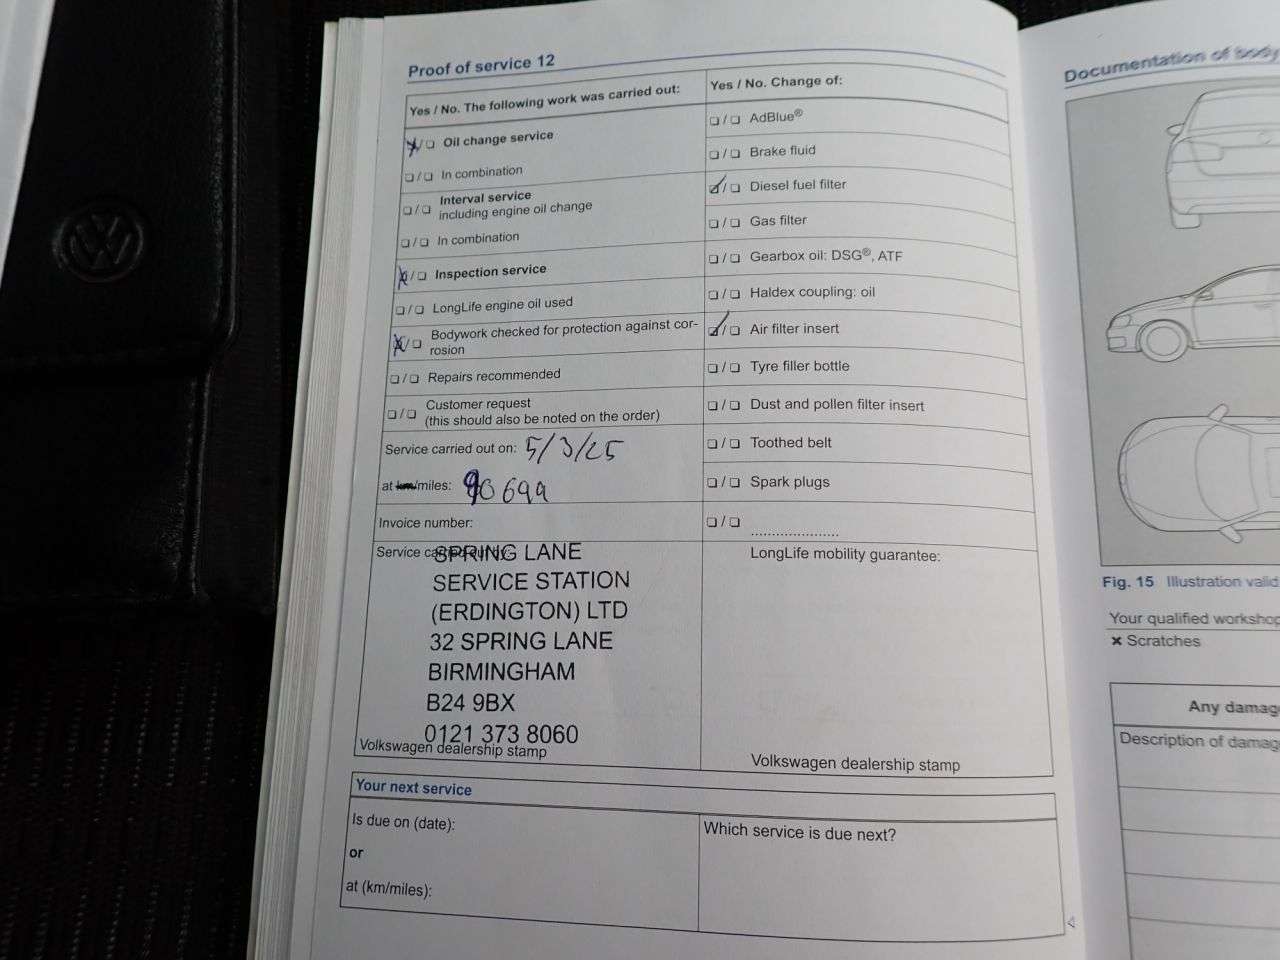 Proof of service 12
Yes / No. The following work was carried out:
❏ / ❏ Oil change service
❏ / ❏ In combination
❏ / ❏ Interval service
including engine oil change
❏ / ❏ In combination
❏ / ❏ Inspection service
❏ / ❏ LongLife engine oil used
❏ / ❏ Bodywork checked for protection against cor-
rosion
❏ / ❏ Repairs recommended
❏ / ❏ Customer request
(this should also be noted on the order)
Service carried out on: 5/3/25
at km/miles: 90699
Invoice number:
Service carried out by:
SPRING LANE
SERVICE STATION
(ERDINGTON) LTD
32 SPRING LANE
BIRMINGHAM
B24 9BX
0121 373 8060
Volkswagen dealership stamp
Yes / No. Change of:
❏ / ❏ AdBlue®
❏ / ❏ Brake fluid
❏ / ❏ Diesel fuel filter
❏ / ❏ Gas filter
❏ / ❏ Gearbox oil: DSG®, ATF
❏ / ❏ Haldex coupling: oil
❏ / ❏ Air filter insert
❏ / ❏ Tyre filler bottle
❏ / ❏ Dust and pollen filter insert
❏ / ❏ Toothed belt
❏ / ❏ Spark plugs
❏ / ❏ .....................
LongLife mobility guarantee:
Volkswagen dealership stamp
Your next service
Is due on (date):
or
at (km/miles):
Which service is due next?
Documentation of body
Fig. 15 Illustration valid
Your qualified workshop
✖ Scratches
Any damage
Description of damag